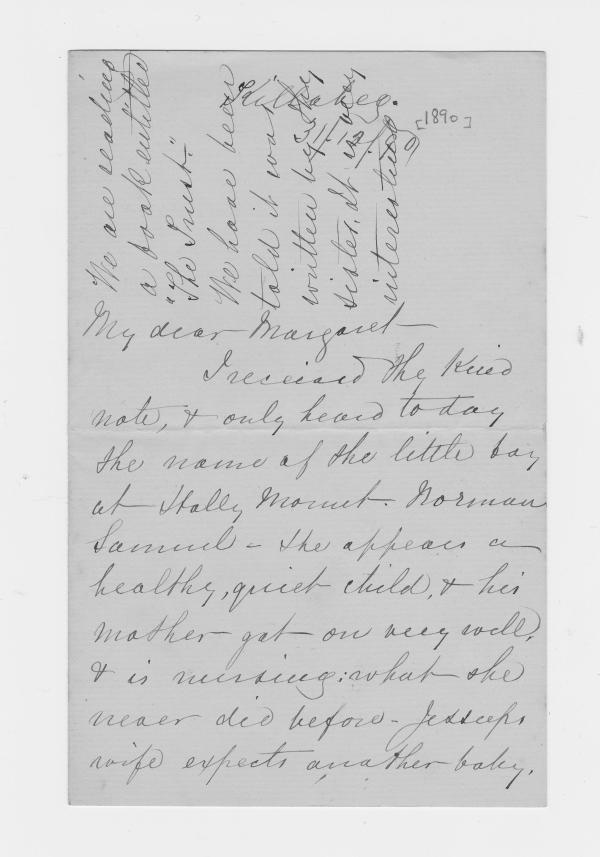 [1890]
My dear Margaret—
I received thy kind
note, & only heard to day
the name of the little boy
at Holly Mount. Norman
Samuel – he appears a
healthy, quiet child, & his
mother got on very well,
& is nursing; what she
never did before – Jessieps
wife expects another baby.
We are reading
a book entitled
"The Trust."
We have been
told it was
written by thy
sister. It is very
interesting